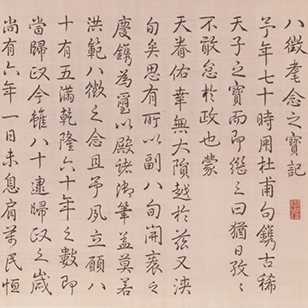 八徵耄念之寶記
予年七十時用杜甫句鐫古稀
天子之寶而即繼之曰猶日孜孜
不敢怠於政也蒙
天眷佑幸無大隕越於茲又浹
旬矣思有所以副八旬開袠之
慶鐫為璽以殿諸御筆蓋莫若
洪範八徵之念且予夙立願八
十有五滿乾隆六十年之數即
當歸政今雖八十逮歸政之歲
尚有六年一日未息肩萬民恒